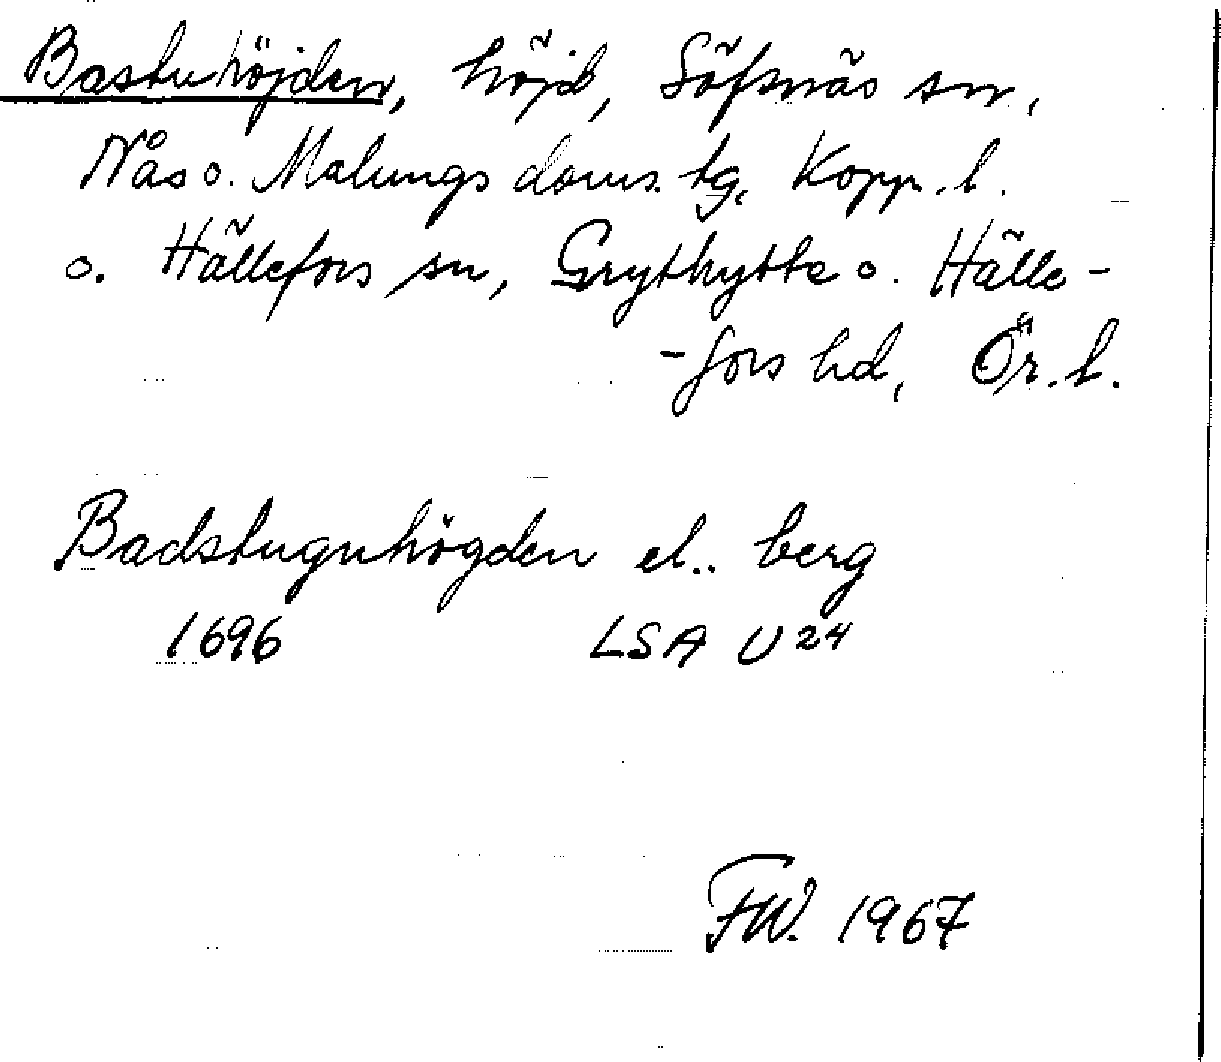 Bastuhöjden, höjd, Säfsnäs sn,
Nås o. Malungs doms. tg, Kopp. l.
o. Hällefors sn, Grythytte o. Hälle-
-fors hd, Ör. l.
Badstuguhögden el.. berg
1696 LSA U 24
FW. 1967